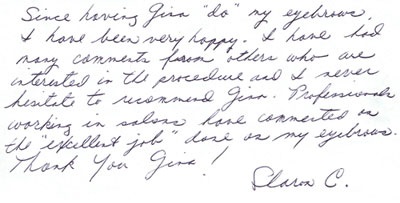 Since having Gina "do" my eyebrows,
I have been very happy. I have had
many comments from others who are
interested in the procedure and I never
hesitate to recommend Gina. Professionals
working in salons have commented on
the "excellent job" done on my eyebrows.
Thank You Gina!
Sharon C.